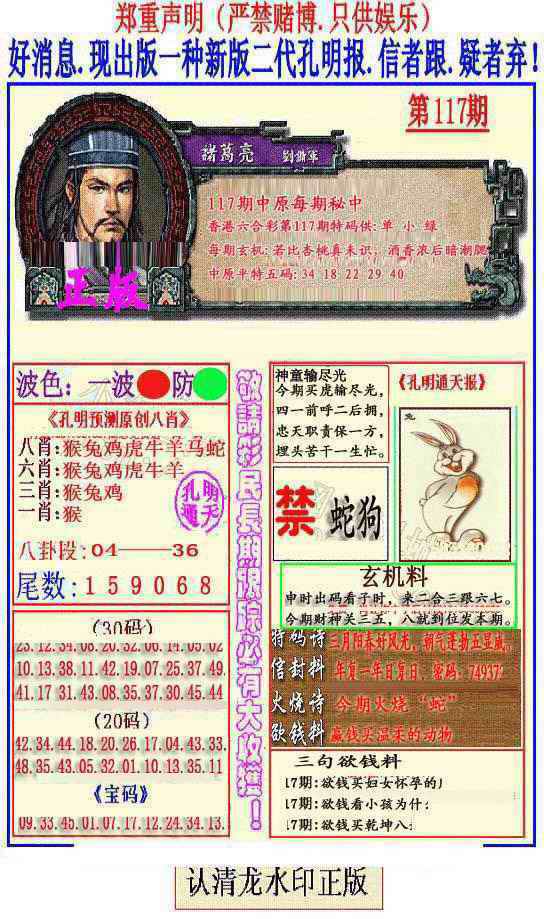 郑重声明（严禁赌博.只供娱乐）
好消息.现出版一种新版二代孔明报.信者跟.疑者弃!
第117期
諸葛亮
117期中原每期秘中
香港六合彩第117期特码供:单 小 绿
每期玄机:若比杏桃真未识，酒香浓后暗潮腮
中原平特五码:34 18 22 29 40
正版
波色：一波 防
《孔明预测原创八肖》
八肖:猴兔鸡虎牛羊马蛇
六肖:猴兔鸡虎牛羊
三肖:猴兔鸡
一肖:猴
孔明
通天
八卦段:04——36
尾数:159068
敬請彩民長期跟踪必有大收獲！
神童输尽光
今期买虎输尽光，
四一前呼二后拥，
忠天职责保一方，
埋头苦干一生忙。
《孔明通天报》
兔
禁 蛇狗
玄机料
申时出码看子时，来二合三跟六七。
今期财神关三五，八就到位发本期。
特码诗 三月阳春好风光，朝气蓬勃五亚威，
信封料 年复一年日复日、密码：74937?
火烧诗 今期火烧“蛇”
欲钱料 赢钱买温柔的动物
(30码)
23.12.34.08.20.32.06.14.05.02
10.13.38.11.42.19.07.25.37.49
41.17.31.43.08.35.37.30.45.44
(20码)
42.34.44.18.20.26.17.04.43.33.
48.35.43.05.32.01.10.13.35.11
《宝码》
09.33.45.01.07.17.12.24.34.13.
三句欲钱料
17期:欲钱买妇女怀孕的
17期:欲钱看小孩为什:
17期:欲钱买乾坤八:
认清龙水印正版